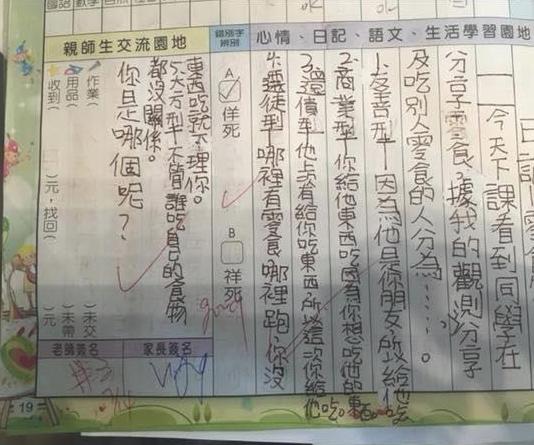 心情、日記、語文、生活學習園地
今天下課看到同學在
分享零食,據我的觀測分享
及吃別人零食的人分為……。
1.友善型 因為他是你朋友所以給他吃
2.商業型 你給他東西吃因為你想吃他的東西。
3.還債型 他上次有給你吃東西所以這次你給他吃。
4.叛徒型 哪裡有零食哪裡跑,你沒
東西吃就不理你。
5.大方型 不管誰吃自己的食物
都沒關係。
你是哪個呢?
錯別字辨別
A
佯死
B
祥死
good
親師生交流園地
作業
用品
收到
)元,找回(
)未交
)未帶
)元
家長簽名
老師簽名
19